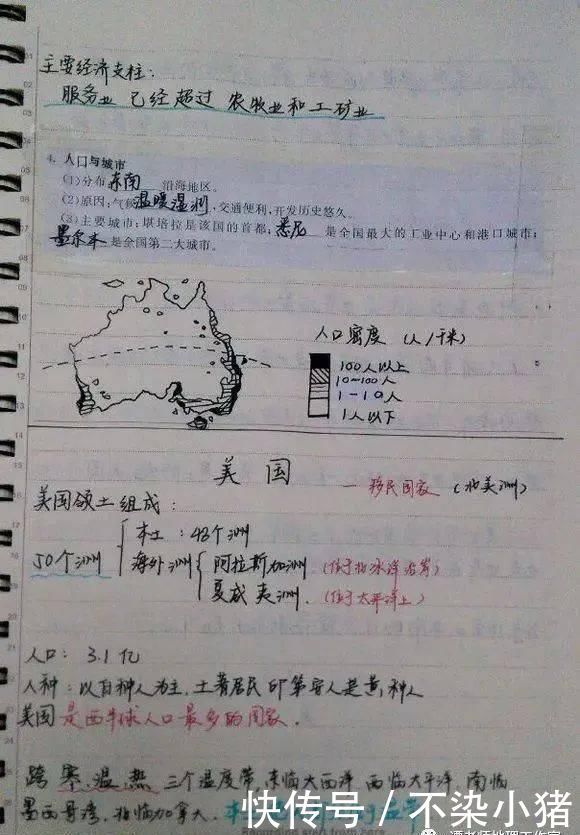 主要经济支柱：
服务业 已经超过 农牧业和工矿业
4. 人口与城市
(1)分布东南 沿海地区。
(2)原因：气候温暖湿润，交通便利，开发历史悠久。
(3)主要城市：堪培拉是该国的首都；悉尼 是全国最大的工业中心和港口城市；
墨尔本 是全国第二大城市。
人口密度 (人/千米)
100人以上
10~100人
1-10人
1人以下
美国
移民国家 (北美洲)
美国领土组成：
本土：48个洲
50个洲 海外洲 阿拉斯加洲 (位于北冰洋沿岸)
夏威夷洲. (位于太平洋上)
人口：3.1亿
人种：以白种人为主，土著居民印第安人是黄种人
美国是西半球人口最多的国家.
跨寒、温、热 三个温度带，东临大西洋 西临太平洋，南临
墨西哥湾，北临加拿大.
快传号 / 不染小猪